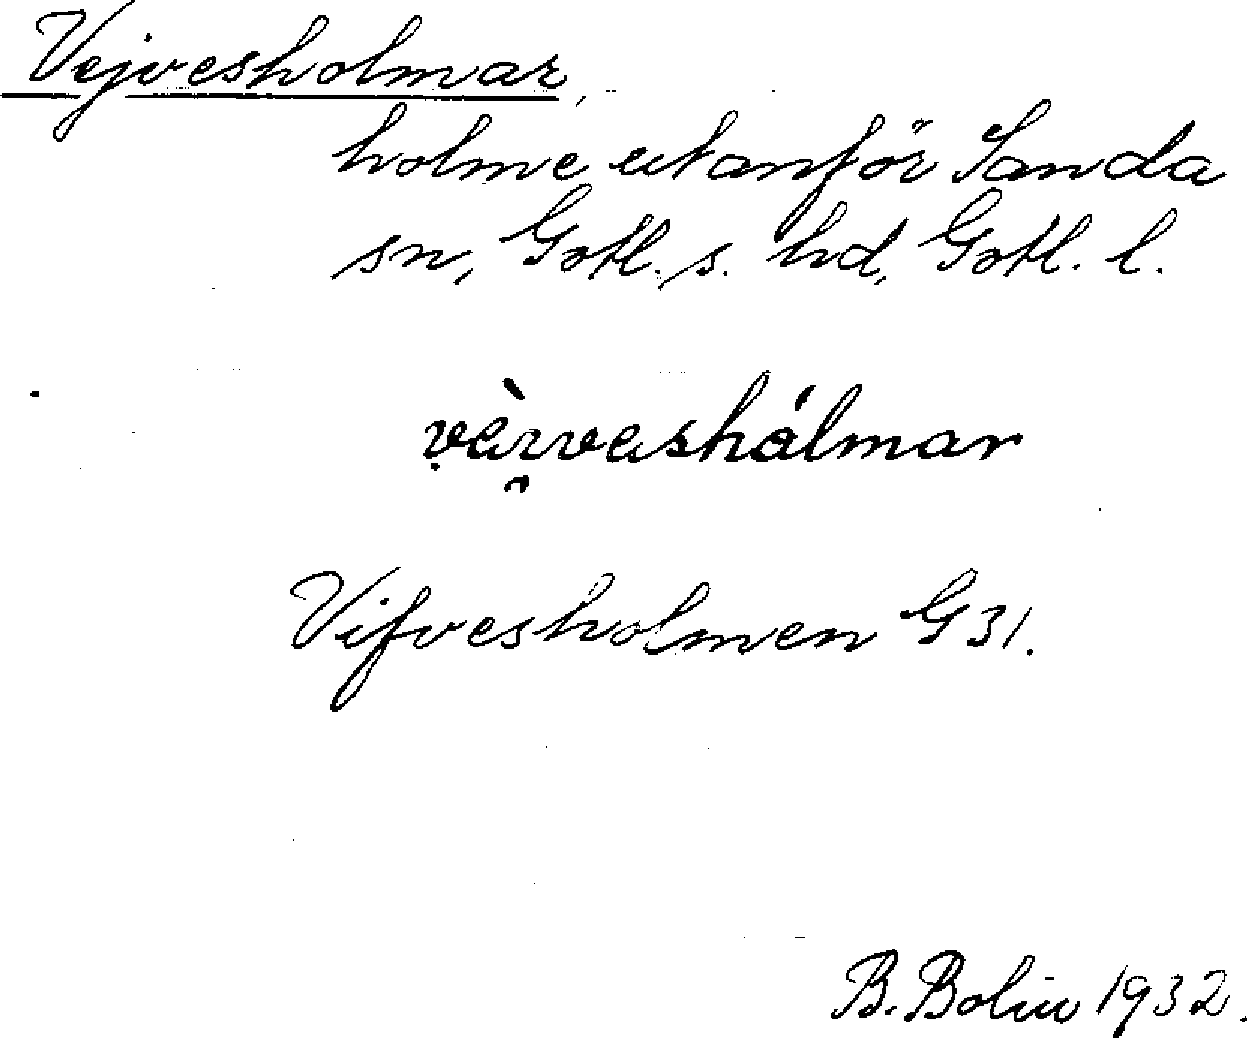 Vejvesholmar,
holme utanför Sanda
sn, Gotl. s. hd, Gotl. l.
Vifvesholmen G31.
B. Bolin 1932.